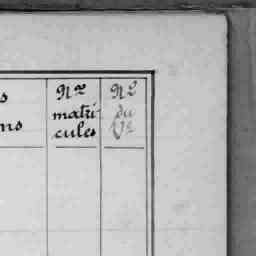 s
ns
Nos
matri
cules
No
du
Vt